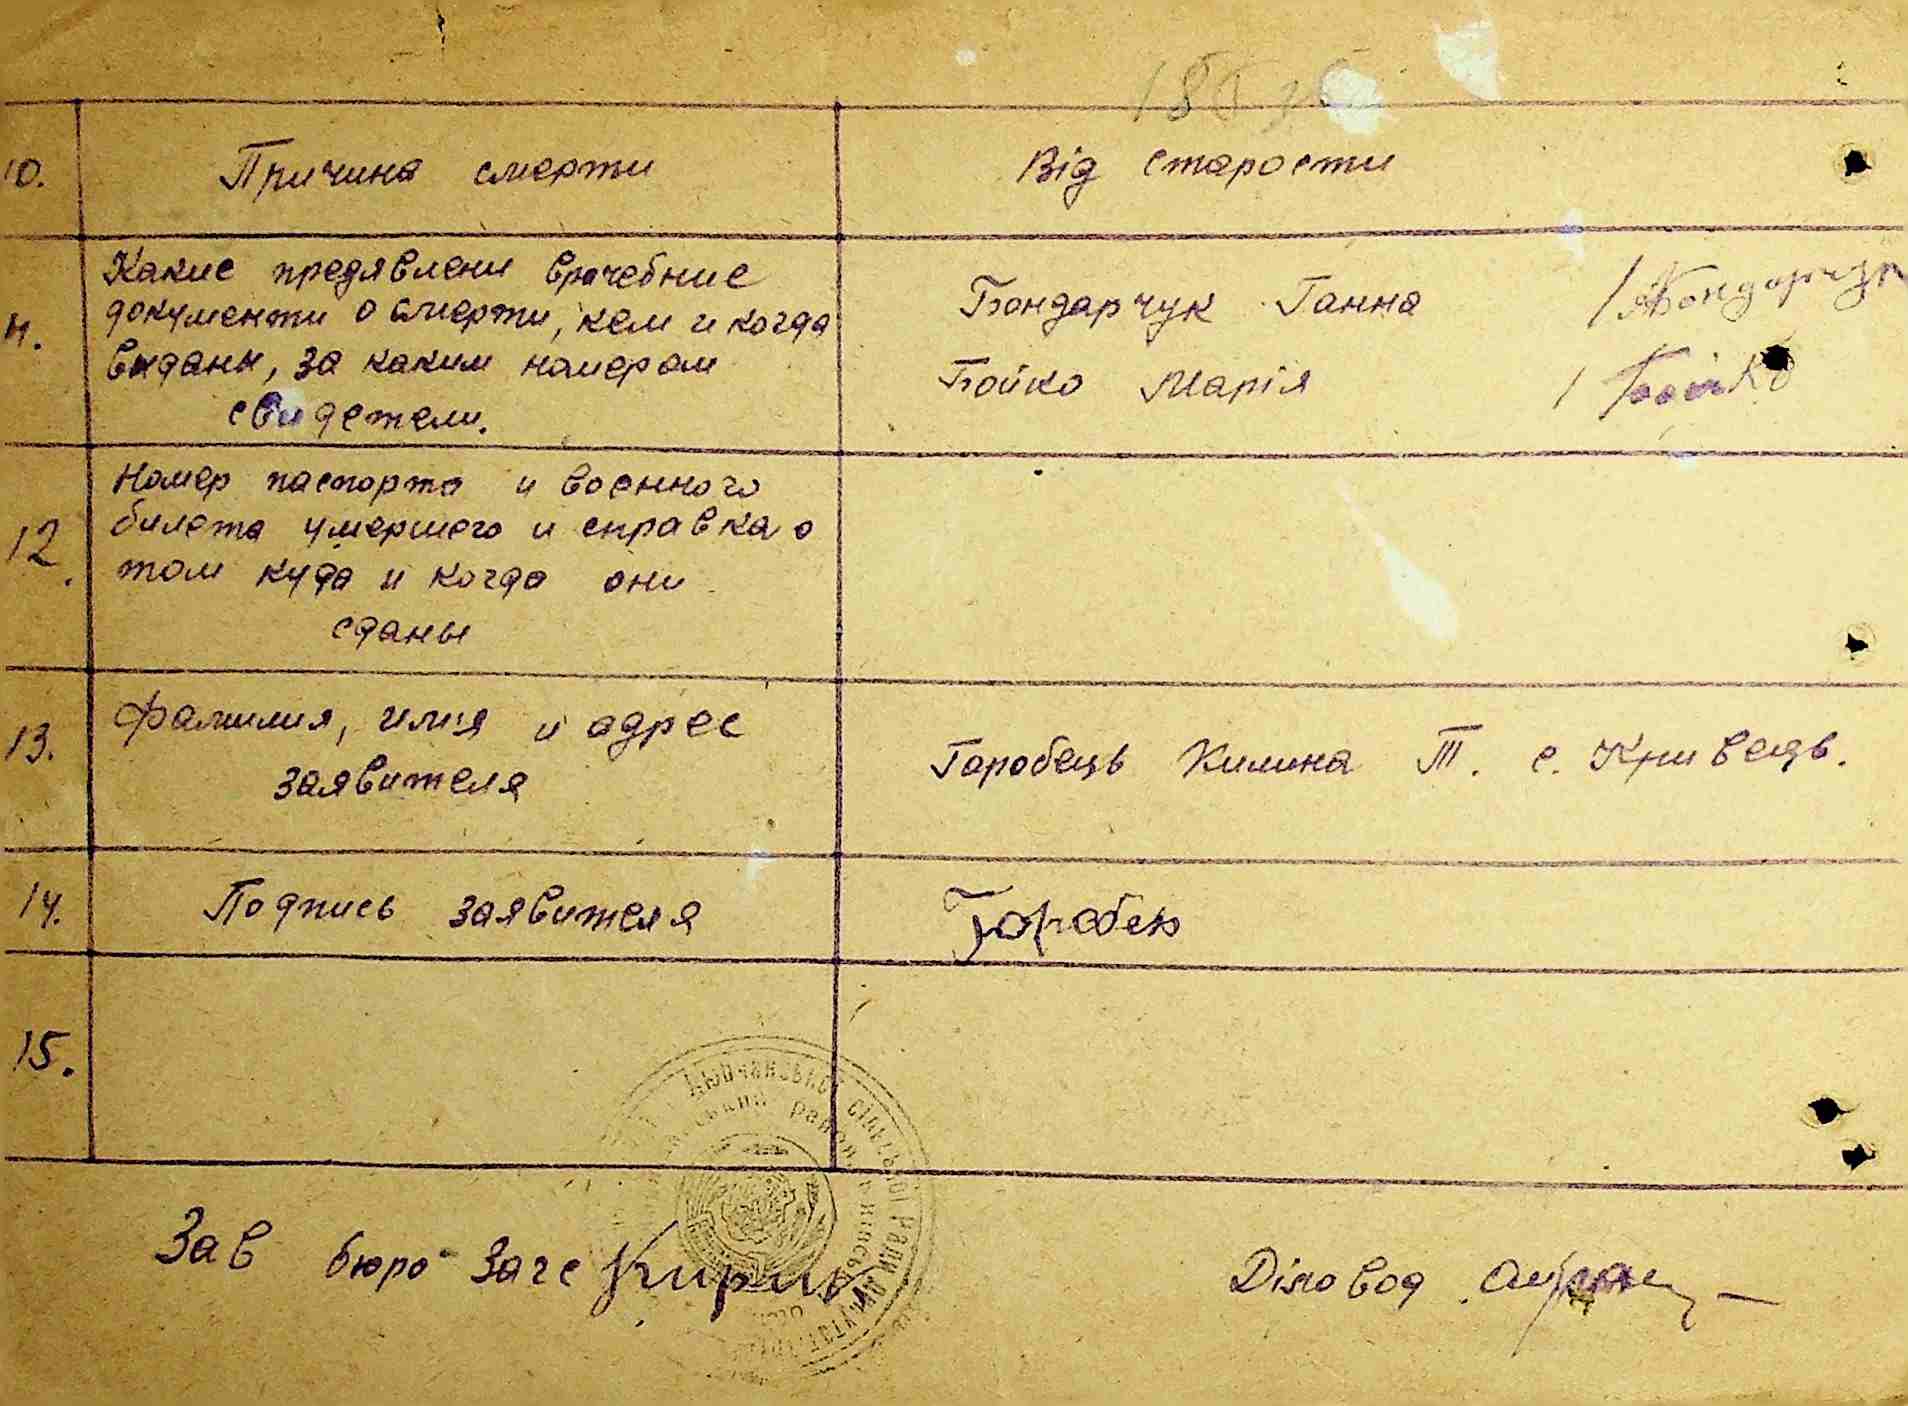 10. Причина смерти Від старости
11. Какие предявлени врачебние
документи о смерти, кем и когда
видани, за каким номером
свидетели.
Бондарчук Ганна / Бондарчук
Бойко Марія / Бойко
12. Номер паспорта и военного
билета умершего и справка о
том куда и когда они
сданы
13. Фамилия, имя и адрес
заявителя
Горобець Килина Т. с. Кривець.
14. Подпись заявителя Горобец
15.
Зав бюро Загс Кирик
Діловод
сільської Ради депутатів
район